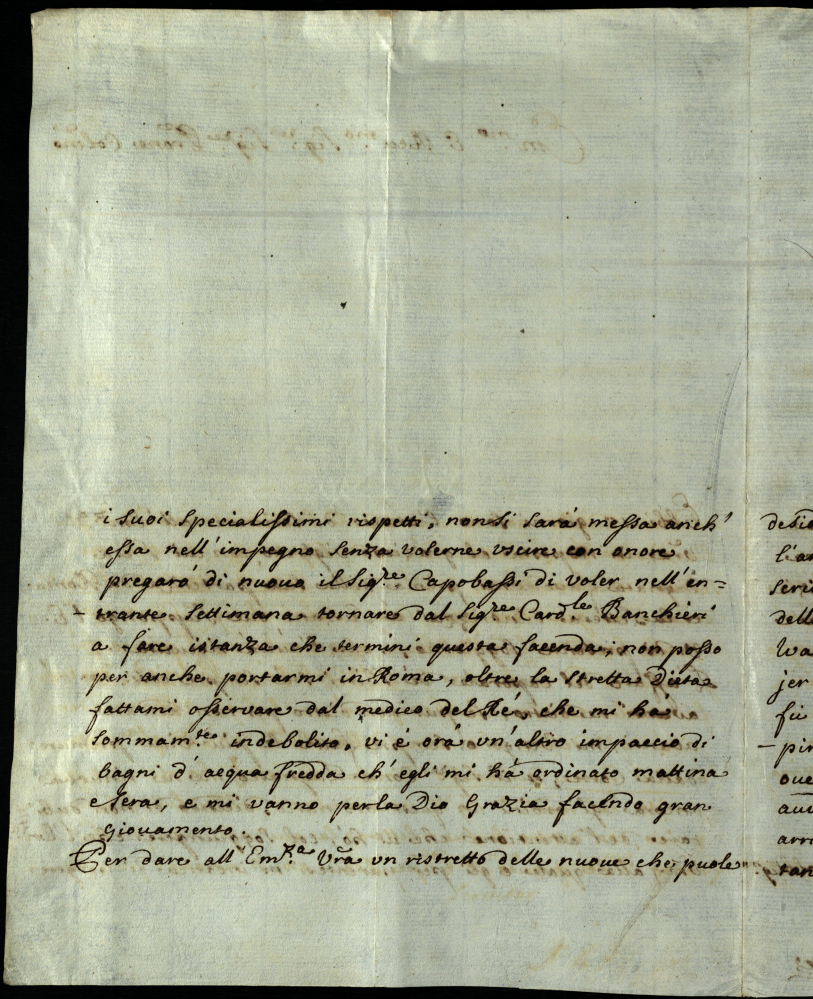 i suoi specialissimi rispetti, non si sará messa anch'
essa nell'impegno senza volerne uscire con onore
pregaró di nuovo il Sig.re Capobassi di voler nell'en=
-trante settimana tornare dal Sig.re Card.le Banchieri
a fare istanza che termini questa facenda; non posso
per anche portarmi in Roma, oltre la stretta Dieta
fattami osservare dal medico del Ré, che mi há
sommam.te indebolito, vi é ora un'altro impaccio di
bagni d'acqua fredda ch'egli mi há ordinato mattina
e sera, e mi vanno per la Dio Grazia facendo gran
giovamento.
Per dare all'Em.za Vra un ristretto delle nuove che puole
l'a
seri
dell
jer
fú
-pir
aue
arr
tan